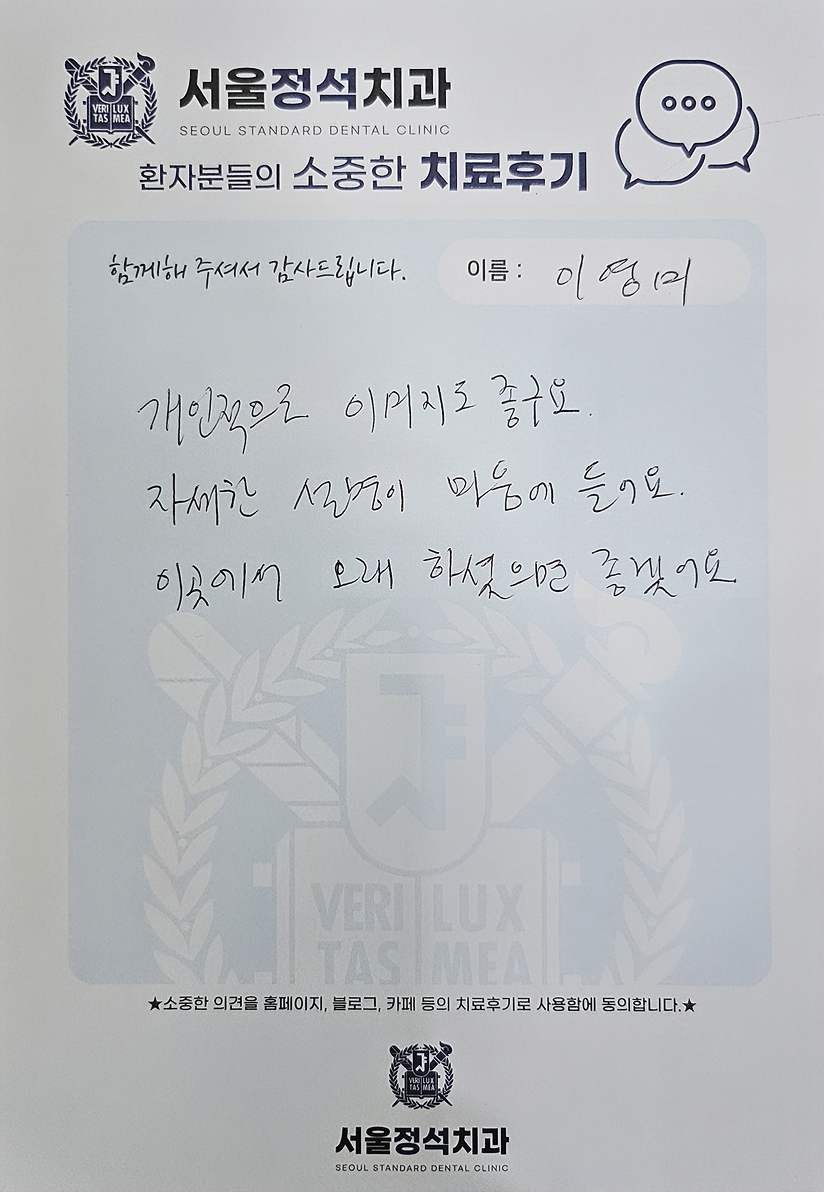 서울정석치과
SEOUL STANDARD DENTAL CLINIC
VERI LUX
TAS MEA
환자분들의 소중한 치료후기
함께해 주셔서 감사드립니다.
이름 : 이영미
개인적으로 이미지도 좋구요.
자세한 설명이 마음에 들어요.
이곳에서 오래 하셨으면 좋겠어요
VERI LUX
TAS MEA
★소중한 의견을 홈페이지, 블로그, 카페 등의 치료후기로 사용함에 동의합니다.★
VERI LUX
TAS MEA
서울정석치과
SEOUL STANDARD DENTAL CLINIC